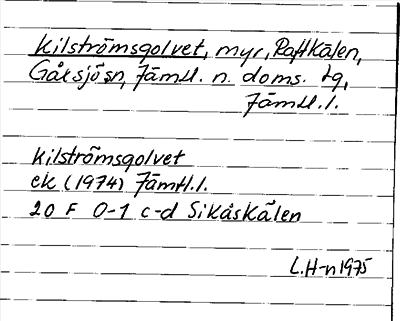 Kilströmsgolvet, myr, Raftkälen,
Gåxsjösn, Jämtl. n. doms. tg,
Jämtl.l.
Kilströmsgolvet
ek (1974) Jämtl.l.
20 F 0-1 c-d Sikåskälen
L.H-n 1975